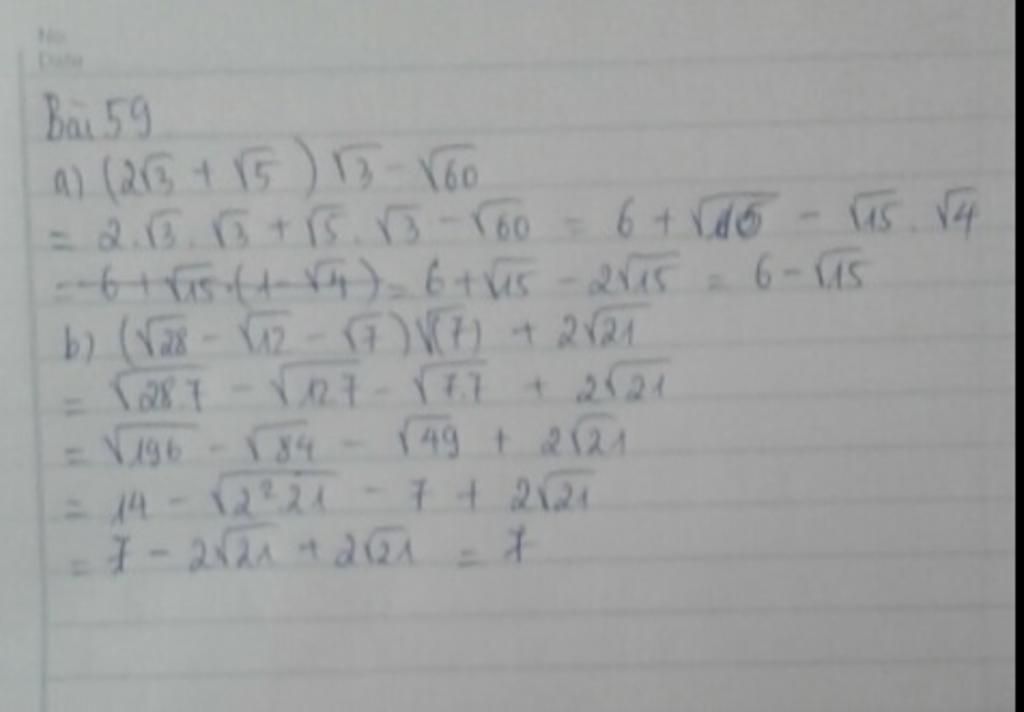 No
Date
Bài 59
a) (2√3 + √5) √3 - √60
= 2.√3.√3 + √5.√3 - √60 = 6 + √15 - √15.√4
= 6 + √15.(1-√4) = 6 + √15 - 2√15 = 6 - √15
b) (√28 - √12 - √7)√(7) + 2√21
= √28.7 - √12.7 - √7.7 + 2√21
= √196 - √84 - √49 + 2√21
= 14 - √2².21 - 7 + 2√21
= 7 - 2√21 + 2√21 = 7